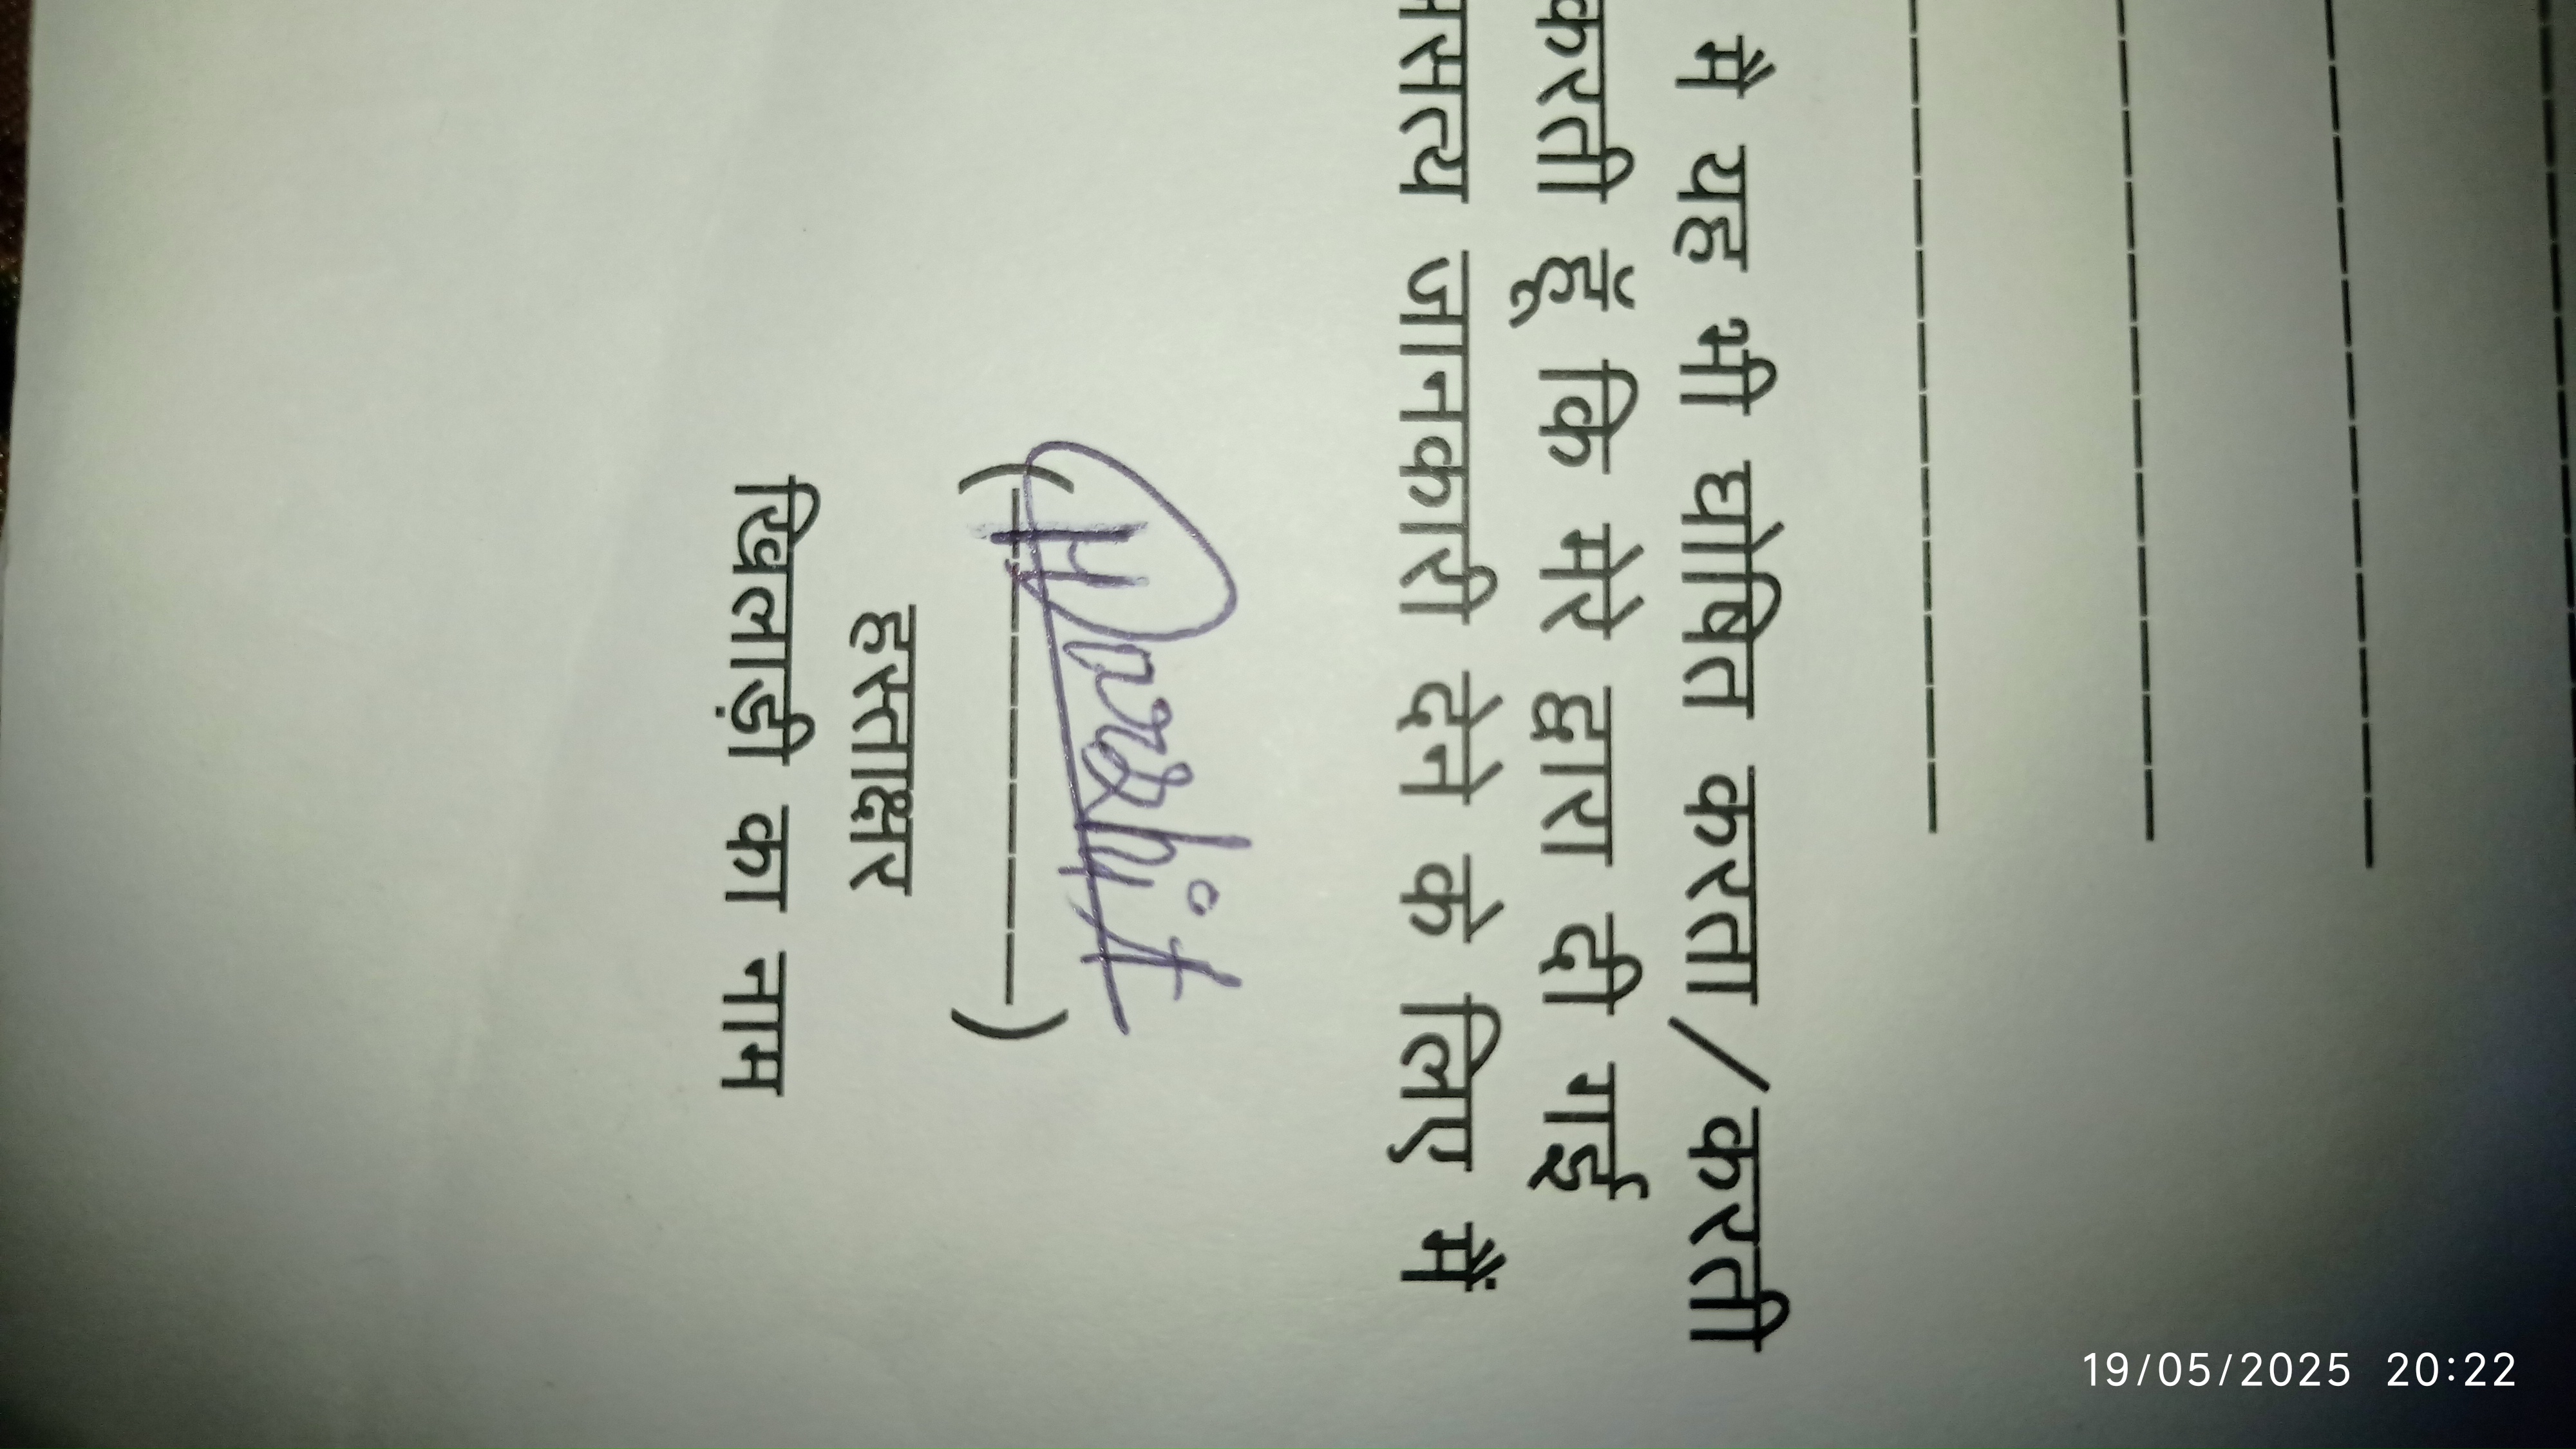 मै यह भी घोषित करता/करती
करती हूँ कि मेरे द्वारा दी गई
असत्य जानकारी देने के लिए मैं
Harshit
(__________)
हस्ताक्षर
खिलाड़ी का नाम
19/05/2025 20:22